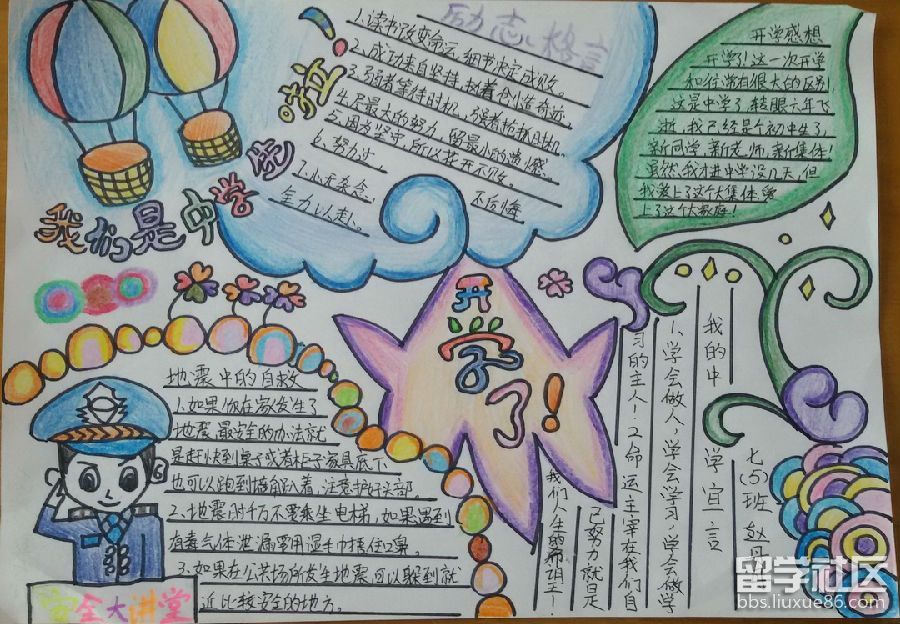 我们是中学生啦！
励志格言
1.读书改变命运，细节决定成败。
2.成功来自坚持，执着创造奇迹。
3.弱者等待时机，强者
4.尽最大的努力，留最小的遗憾。
5.因为坚守，所以花开不败。
6.努力过
不后悔
7.心无杂念
全力以赴。
开学感想
开学了！这一次开学
和往常有很大的区别
这是中学了，转眼六年飞
逝，我已经是个初中生了，
新同学，新老师，新集体！
虽然，我才进中学没几天，但
我爱上了这个大集体，爱
上了这个大家庭！
开学了！
我的中学宣言
七(5)班
1、学会做人，学会学习，学会做学
习的主人！2命运主宰在我们自
己努力就是
我们人生的
地震中的自救
1.如果你在家发生了
地震最安全的办法就
是赶快到桌子或者柜子家具底下
也可以跑到墙角趴着，注意护好头部。
2.地震时千万不要乘坐电梯，如果遇到
有毒气体泄漏要用湿毛巾捂住口鼻。
3.如果在公共场所发生地震，可以躲到就
近比较安全的地方。
安全大讲堂
留学社区
bbs.liuxue86.com